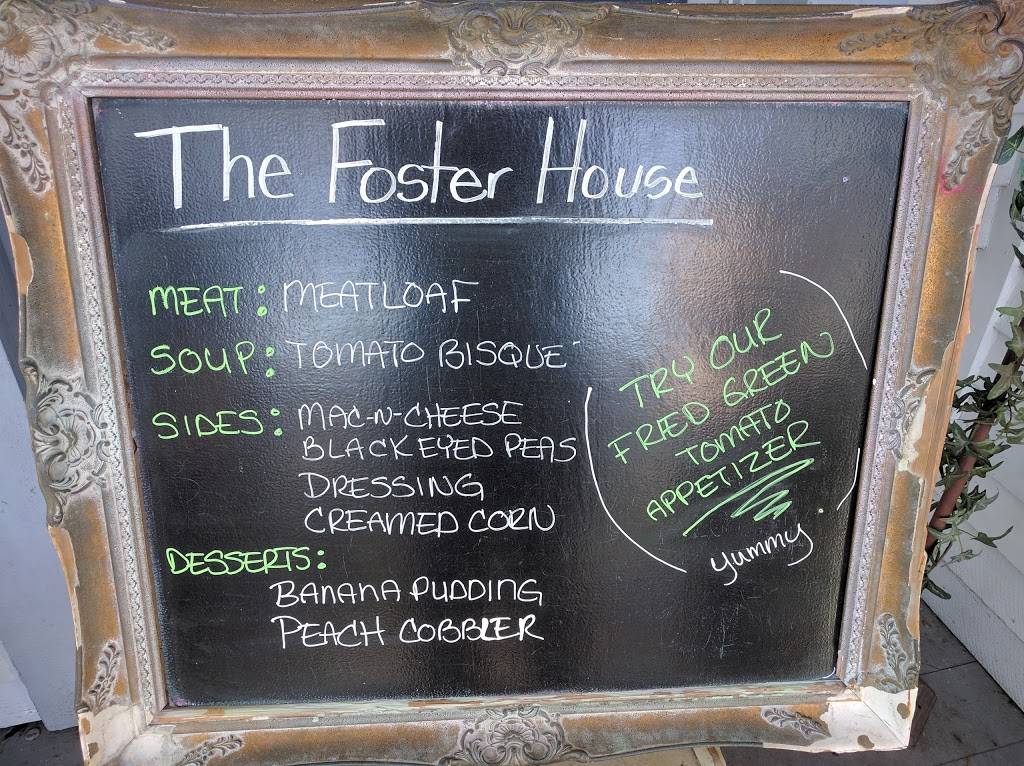 The Foster House
MEAT: MEATLOAF
SOUP: TOMATO BISQUE
SIDES: MAC-N-CHEESE
BLACK EYED PEAS
DRESSING
CREAMED CORN
DESSERTS:
BANANA PUDDING
PEACH COBBLER
TRY OUR
FRIED GREEN
TOMATO
APPETIZER
yummy